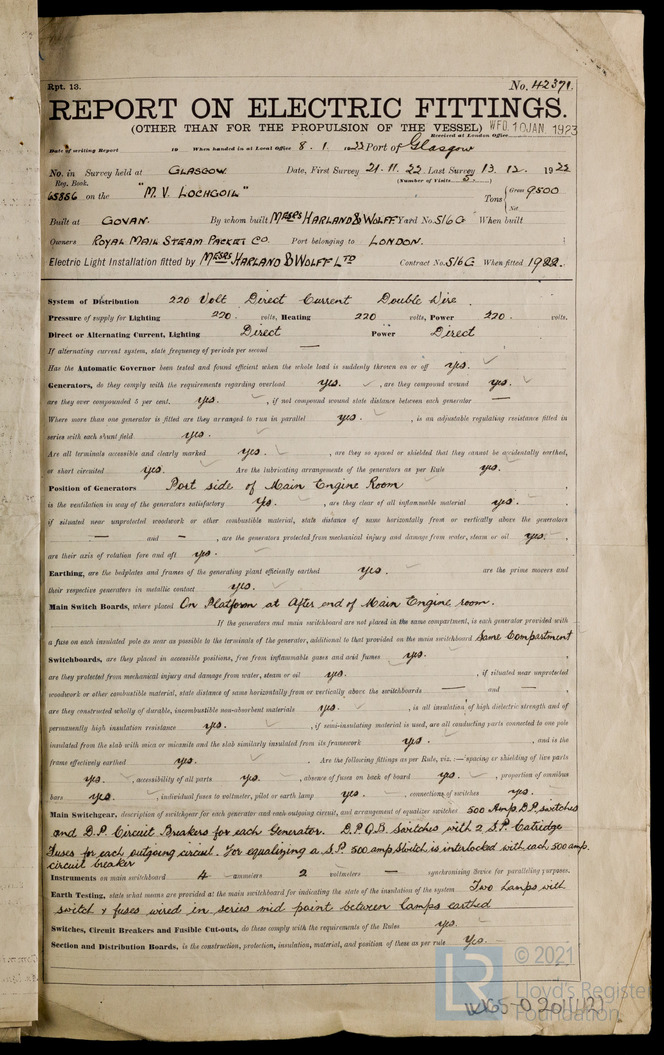 Rpt. 13.
No. 42371.
REPORT ON ELECTRIC FITTINGS.
(OTHER THAN FOR THE PROPULSION OF THE VESSEL) WED. 10 JAN. 1923
Received at London Office
Date of writing Report 19 When handed in at Local Office 8. 1. 1923 Port of Glasgow
No. in Survey held at GLASGOW Date, First Survey 21.11.22 Last Survey 13. 12. 1922
Reg. Book. (Number of Visits 5.)
65866 on the "M.V. LOCHGOIL" Tons { Gross 9500 Net
Built at GOVAN. By whom built MESSRS HARLAND & WOLFF Yard No. 516G When built
Owners ROYAL MAIL STEAM PACKET CO. Port belonging to LONDON.
Electric Light Installation fitted by MESSRS HARLAND & WOLFF LTD Contract No. 516G When fitted 1922.
System of Distribution 220 Volt Direct Current Double Wire.
Pressure of supply for Lighting 220. volts, Heating 220 volts, Power 220. volts.
Direct or Alternating Current, Lighting Direct Power Direct
If alternating current system, state frequency of periods per second —
Has the Automatic Governor been tested and found efficient when the whole load is suddenly thrown on or off yes. ✓
Generators, do they comply with the requirements regarding overload yes. ✓, are they compound wound yes. ✓
are they over compounded 5 per cent. yes. ✓, if not compound wound state distance between each generator —
Where more than one generator is fitted are they arranged to run in parallel yes. ✓, is an adjustable regulating resistance fitted in
series with each shunt field yes. ✓
Are all terminals accessible and clearly marked yes. ✓, are they so spaced or shielded that they cannot be accidentally earthed,
or short circuited yes. ✓ Are the lubricating arrangements of the generators as per Rule yes.
Position of Generators Port side of Main Engine Room
is the ventilation in way of the generators satisfactory Yes. ✓, are they clear of all inflammable material yes. ✓
if situated near unprotected woodwork or other combustible material, state distance of same horizontally from or vertically above the generators
— and —, are the generators protected from mechanical injury and damage from water, steam or oil yes. ✓
are their axis of rotation fore and aft yes.
Earthing, are the bedplates and frames of the generating plant efficiently earthed yes. ✓ are the prime movers and
their respective generators in metallic contact yes. ✓
Main Switch Boards, where placed On Platform at After end of Main Engine room.
If the generators and main switchboard are not placed in the same compartment, is each generator provided with
a fuse on each insulated pole as near as possible to the terminals of the generator, additional to that provided on the main switchboard Same Compartment
Switchboards, are they placed in accessible positions, free from inflammable gases and acid fumes yes.
are they protected from mechanical injury and damage from water, steam or oil yes. ✓, if situated near unprotected
woodwork or other combustible material, state distance of same horizontally from or vertically above the switchboards — and —,
are they constructed wholly of durable, incombustible non-absorbent materials yes. ✓, is all insulation of high dielectric strength and of
permanently high insulation resistance yes. ✓, if semi-insulating material is used, are all conducting parts connected to one pole
insulated from the slab with mica or micanite and the slab similarly insulated from its framework yes. ✓, and is the
frame effectively earthed yes. ✓. Are the following fittings as per Rule, viz.:— spacing or shielding of live parts
yes. ✓, accessibility of all parts yes. ✓, absence of fuses on back of board yes. ✓, proportion of omnibus
bars yes. ✓, individual fuses to voltmeter, pilot or earth lamp yes. ✓, connections of switches yes. ✓
Main Switchgear, description of switchgear for each generator and each outgoing circuit, and arrangement of equalizer switches 500 Amp. D.P. switches
and D.P. Circuit Breakers for each Generator. D.P.Q.B. Switches with 2 S.P. Catridge
Fuses for each outgoing circuit. For equalizing a S.P. 500 amp Switch is interlocked with each 500 amp.
circuit breaker
Instruments on main switchboard 4 ammeters 2 voltmeters — synchronising device for paralleling purposes.
Earth Testing, state what means are provided at the main switchboard for indicating the state of the insulation of the system Two Lamps with
switch & fuses wired in series mid point between lamps earthed
Switches, Circuit Breakers and Fusible Cut-outs, do these comply with the requirements of the Rules yes. ✓
Section and Distribution Boards, is the construction, protection, insulation, material, and position of these as per rule Yes. ✓
© 2021
LR
Lloyd's Register
Foundation
W165-0201(1/2)